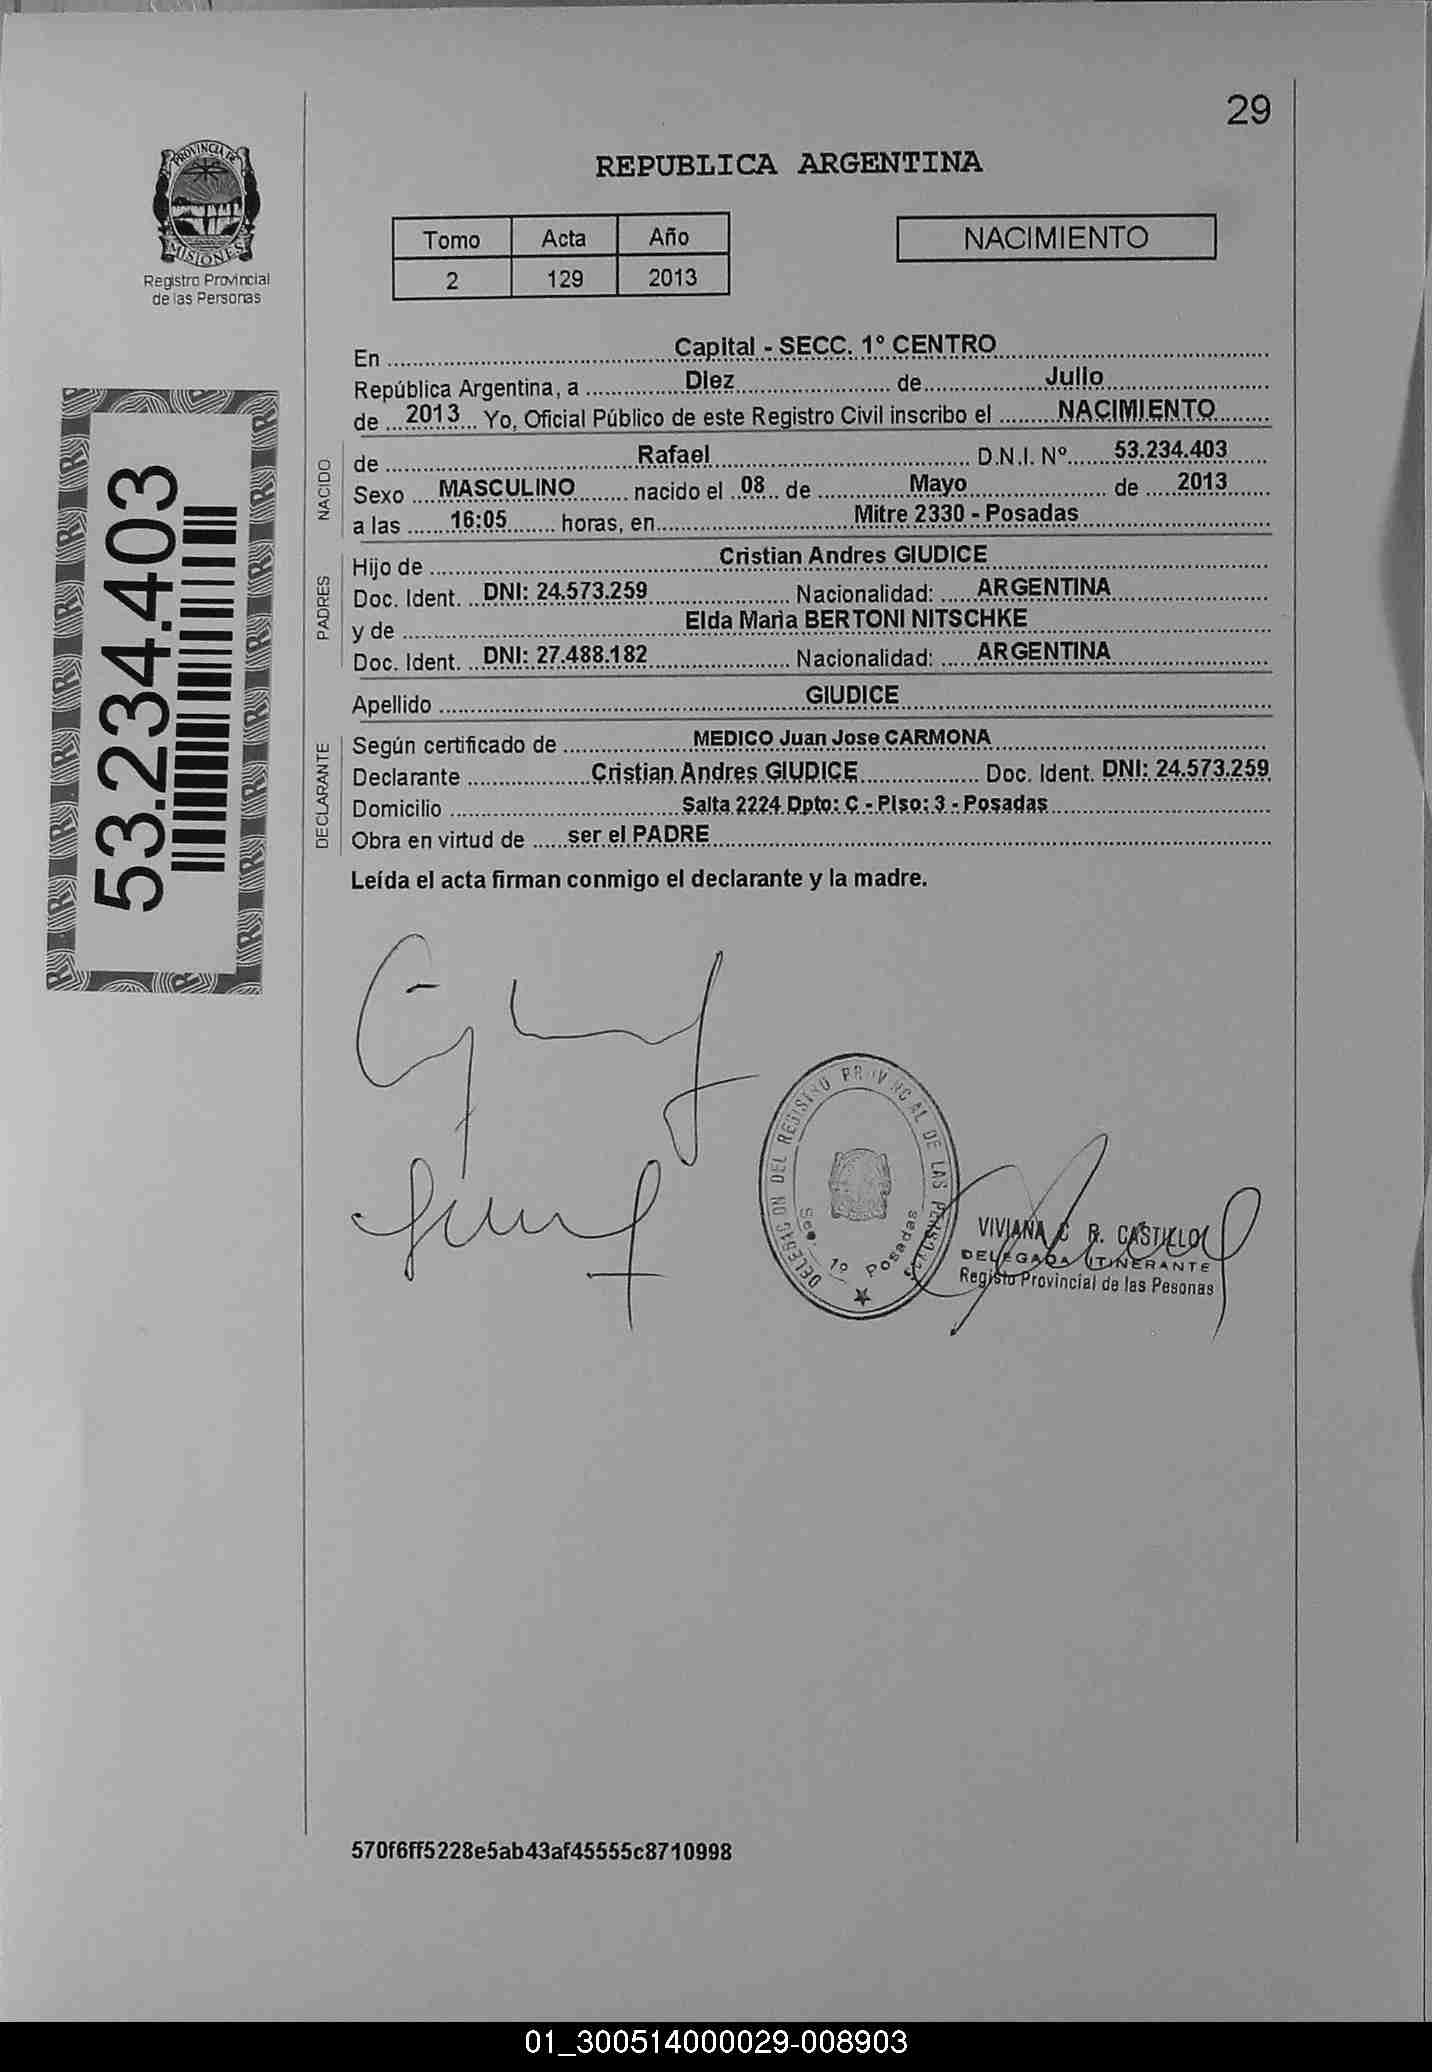 29
REPUBLICA ARGENTINA
PROVINCIA DE
MISIONES
Registro Provincial
de las Personas
Tomo Acta Año
2 129 2013
NACIMIENTO
53.234.403
En Capital - SECC. 1º CENTRO
República Argentina, a Diez de Julio
de 2013 Yo, Oficial Público de este Registro Civil inscribo el NACIMIENTO
NACIDO
de Rafael D.N.I. Nº 53.234.403
Sexo MASCULINO nacido el 08 de Mayo de 2013
a las 16:05 horas, en Mitre 2330 - Posadas
PADRES
Hijo de Cristian Andres GIUDICE
Doc. Ident. DNI: 24.573.259 Nacionalidad: ARGENTINA
y de Elda Maria BERTONI NITSCHKE
Doc. Ident. DNI: 27.488.182 Nacionalidad: ARGENTINA
Apellido GIUDICE
DECLARANTE
Según certificado de MEDICO Juan Jose CARMONA
Declarante Cristian Andres GIUDICE Doc. Ident. DNI: 24.573.259
Domicilio Salta 2224 Dpto: C - Piso: 3 - Posadas
Obra en virtud de ser el PADRE
Leída el acta firman conmigo el declarante y la madre.
DELEGACION DEL REGISTRO PROVINCIAL DE LAS PERSONAS
Sec. 1º Posadas
VIVIANA C R. CASTILLO
DELEGADA ITINERANTE
Registo Provincial de las Pesonas
570f6ff5228e5ab43af45555c8710998
01_300514000029-008903